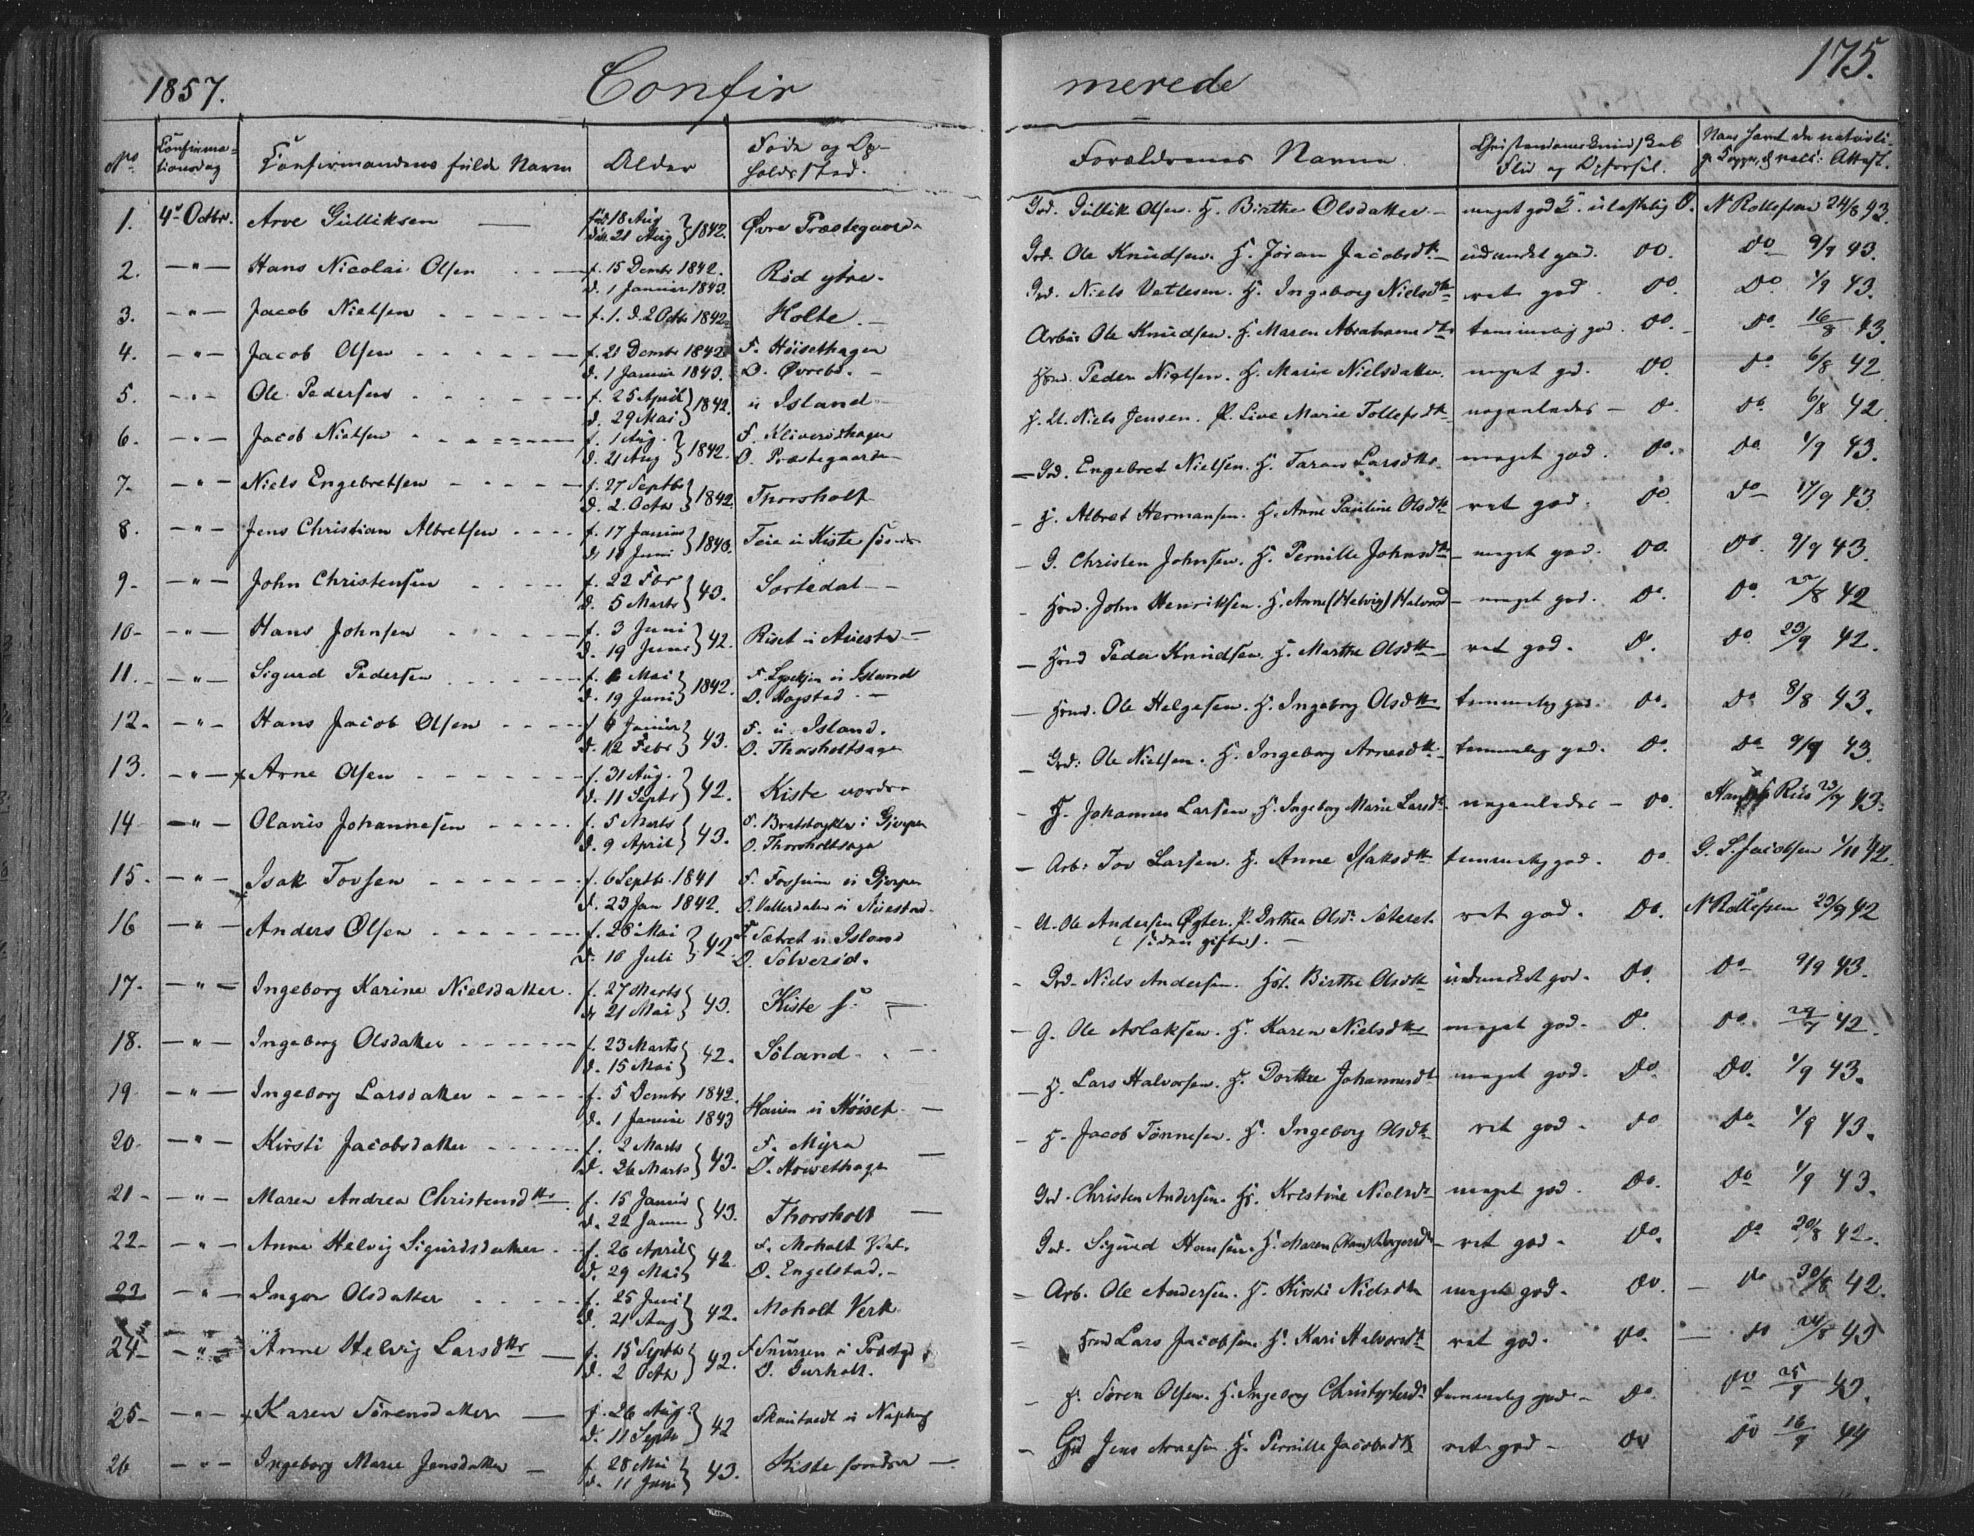 1857.
Confir
merede
175.
No.
Confirma-
tionsdag
Confirmandens fulde Navn
Alder
Føde og Op-
holdssted.
Forældrenes Navne
Christendomskundskab
Flid og Opførsel.
Navs samt de naturli-
ge Kopper, & vacc: Attest.
1. 4de Octbr. Arve Gulliksen
fød 18 Aug
døbt 21 Aug } 1842.
Øvre Præstegaard
Grd. Gullik Olsen. H. Birthe Olsdatter
meget god K. ulastelig O. N Rollefsen 24/8 43.
2. — " — Hans Nicolai Olsen
f. 15 Decmbr 1842.
d. 1 Januar 1843.
Rød ytre.
Grd. Ole Knudsen. H. Joran Jacobsdtr
udmærket god. do. do 9/9 43.
3. — " — Jacob Nielsen
f. 1. d. 2 Octbr 1842
Holte.
Grd. Niels Vetlesen. H. Ingeborg Nielsdtr
ret god do. Do. 1/9 43.
4. — " — Jacob Olsen
f. 21 Decmbr 1842
d. 1 Januar 1843.
F. Høisethagen
O. Øvrebø.
Arbm: Ole Knudsen. H. Maren Abrahamsdtr
temmelig god. do. Do. 16/8 43.
5. — " — Ole Pedersen
f. 25 April
d. 29 Mai } 1842.
u Island
Hmd. Peder Nielsen. H. Marie Nielsdatter.
meget god. do. do 6/8 42
6. — " — Jacob Nielsen
f. 1 Aug.
d. 21 Aug } 1842.
O. Præstegaarden
Niels Jensen. P. Live Marie Tollefsdtr
nogenledes — do. do. 6/8 42.
7. — " — Niels Engebretsen
f. 27 Septbr
d. 2. Octbr } 1842.
Thorsholt
Grd. Engebret Nielsen. H. Taran Larsdtr.
meget god. do. do. 1/9 43.
8. — " — Jens Christian Albretsen
f. 17 Januar
d. 11 Juni } 1843.
Teie u Kiste søndr
H. Albret Hermansen. H. Anne Pauline Olsdtr
ret god. do Do 17/9 43.
9. — " — John Christensen
f. 22 Febr
d. 5 Marts } 43.
Sortedal
G. Christen Johnsen. H. Pernille Johnsdtr
meget god. do. Do. 9/9 43.
10. — " — Hans Johnsen
f. 3 Juni
d. 19 Juni } 42.
Riset u Auestad
Hmd. John Henriksen. H. Anne (Helvig) Halvorsd
meget god. do. Do. 42
11. — " — Sigurd Pedersen
f. 6 Mai
d. 19 Juni } 1842.
u Island
O. Hagstad.
Hmd Peder Knudsen. H. Marthe Olsdtr
ret god. do. do 23/9 42.
12. — " — Hans Jacob Olsen
f 6 Januar
d. 12 Febr } 43.
F. u. Island.
O. Thorsholtsage
Hmd. Ole Helgesen. H. Ingeborg Olsdtr
temmelig god. do. do 8/8 43.
13. — " — x Arne Olsen
f. 31 Aug.
d. 11 Septbr } 42.
Kiste nordre
Grd. Ole Nielsen. H. Ingeborg Arnesdtr
temmelig god. do. Do 9/9 43.
14 — " — Olavus Johannesen
f. 5 Marts
d. 9 April } 43.
F. Bratsbyklev i Gjerpen
O. Thorsholtsage
H. Johannes Larsen H. Ingeborg Marie Larsdtr
nogenledes — do. Riis 23/7 43.
15. — " — Isak Tovsen
f. 6 Septbr. 1841
d. 23 Jan 1842.
F. Fossum i Gjerpen
O. Valterdalen u Auestad.
Arb: Tov Larsen. H. Anne Isaksdtr
temmelig god. do. G. P. Jacobsen 1/11 42.
16 — " — Anders Olsen
f. 28 Mai
d. 10 Juli } 42
F. Sætret u Island
O. Solverød.
U. Ole Andersen Øgter. P. Dorthea Olsdtr Sæteret.
(siden gifte).
ret god. do. N Rollefsen 23/9 42
17. — " — Ingeborg Karine Nielsdatter.
f. 27 Marts
d. 21 Mai } 43.
Kiste s.
Grd. Niels Andersen. Hst. Birthe Olsdtr
udmærket god. do. Do 9/9 43.
18. — " — Ingeborg Olsdatter
f. 23 Marts
d. 15 Mai } 42.
Søland
G. Ole Aslaksen. H. Karen Nielsdtr
meget god. do. Do. 29/7 42.
19 — " — Ingeborg Larsdatter
f. 5 Decmbr 1842.
d. 1 Januar 1843
Haven u Høiset
H. Lars Halvorsen. H. Dorthee Johannesdtr
meget god. do. Do. 1/9 43.
20. — " — Kirsti Jacobsdatter
f. 2 Marts
d. 26 Marts } 43.
F. Myra
O. Høisethage
H. Jacob Tønnesen. H. Ingeborg Olsdtr
ret god. do Do. 1/9 43.
21 — " — Maren Andrea Christensdtr.
f. 15 Januar
d. 22 Janu } 43.
Thorsholt
Grd. Christen Andersen. H. Kristine Nielsdtr
meget god. do. Do 1/9 43.
22 — " — Anne Helvig Sigurdsdatter
f. 26 April
d. 29 Mai } 42.
F. Moholt
O. Engelstad.
Grd. Sigurd Hansen. H. Maren
ret god. do. do 20/8 42.
23 — " — Inger Olsdatter
f. 25 Juni
d. 21 Aug } 42.
Moholt Verk
Arb. Ole Andersen. H. Kirsti Nielsdtr
meget god. do. — do 30/8 42.
24 — " — Anne Helvig Larsdtr
f. 15 Septbr
d. 2 Octbr } 42.
O. Gurholt.
Hmd Lars Jacobsen. H. Kari Halvorsdtr
ret god. do. — do 43
25 — " — x Karen Sörensdatter
f. 26 Aug
d. 11 Septbr } 42
H. Sören Olsen. H. Ingeborg Christophersdtr
temmelig god. do. do 25/9 43.
26 — " — Ingeborg Marie Jensdatter
f. 28 Mai
d. 11 Juni } 43.
Kiste søndre
Grd Jens Arnesen H. Pernille Jacobsdtr
ret god. do do 16/9 44